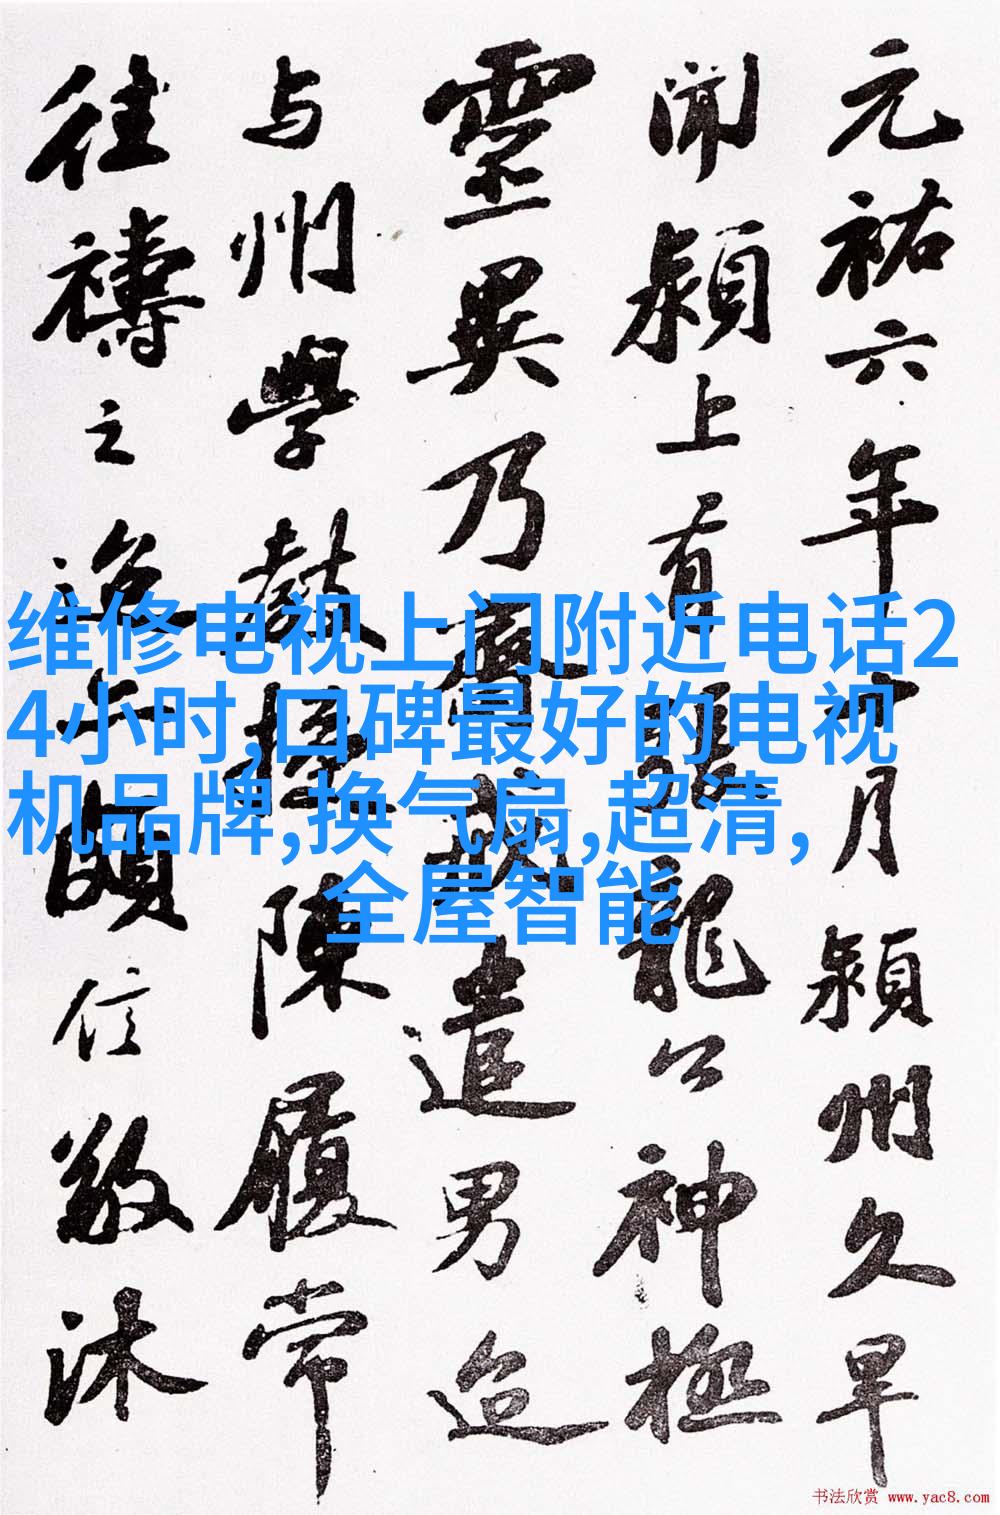 元祐六年十月潁州久旱
聞潁上有張龍公神極
靈異乃齋戒遣男迨
与州學教授陳履常
往禱之迨亦頗信敬沐
维修电视上门附近电话2
4小时,口碑最好的电视
机品牌,换气扇,超清,
全屋智能
书法欣赏 www.yac8.com